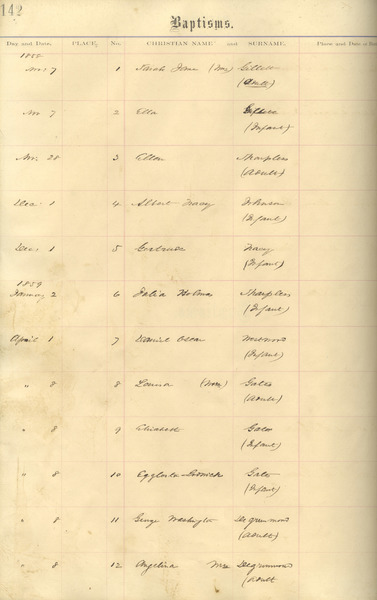 142
Baptisms.
Day and Date. PLACE, No. CHRISTIAN NAME and SURNAME. Place and Date of
Nov 7 1 Sarah Jane (Mrs)
(Adult)
Nov 7 2 Ella
(Infant)
Nov. 28 3 Ellen Sharpless
(Adult)
Dec. 1 4 Albert Johnson
(Infant)
Dec. 1 5 Gertrude
(Infant)
1859
January 2 6 Julia Holmes Sharpless
(Infant)
April 1 7 Daniel Oscar
(Infant)
" 8 8 (Mrs) Gates
(Adult)
" 8 9 Elizabeth Gates
(Infant)
" 8 10 Gates
(Infant)
" 8 11 George Washington Degrummond
(Adult)
" 8 12 Angelina Mrs Degrummond
(Adult